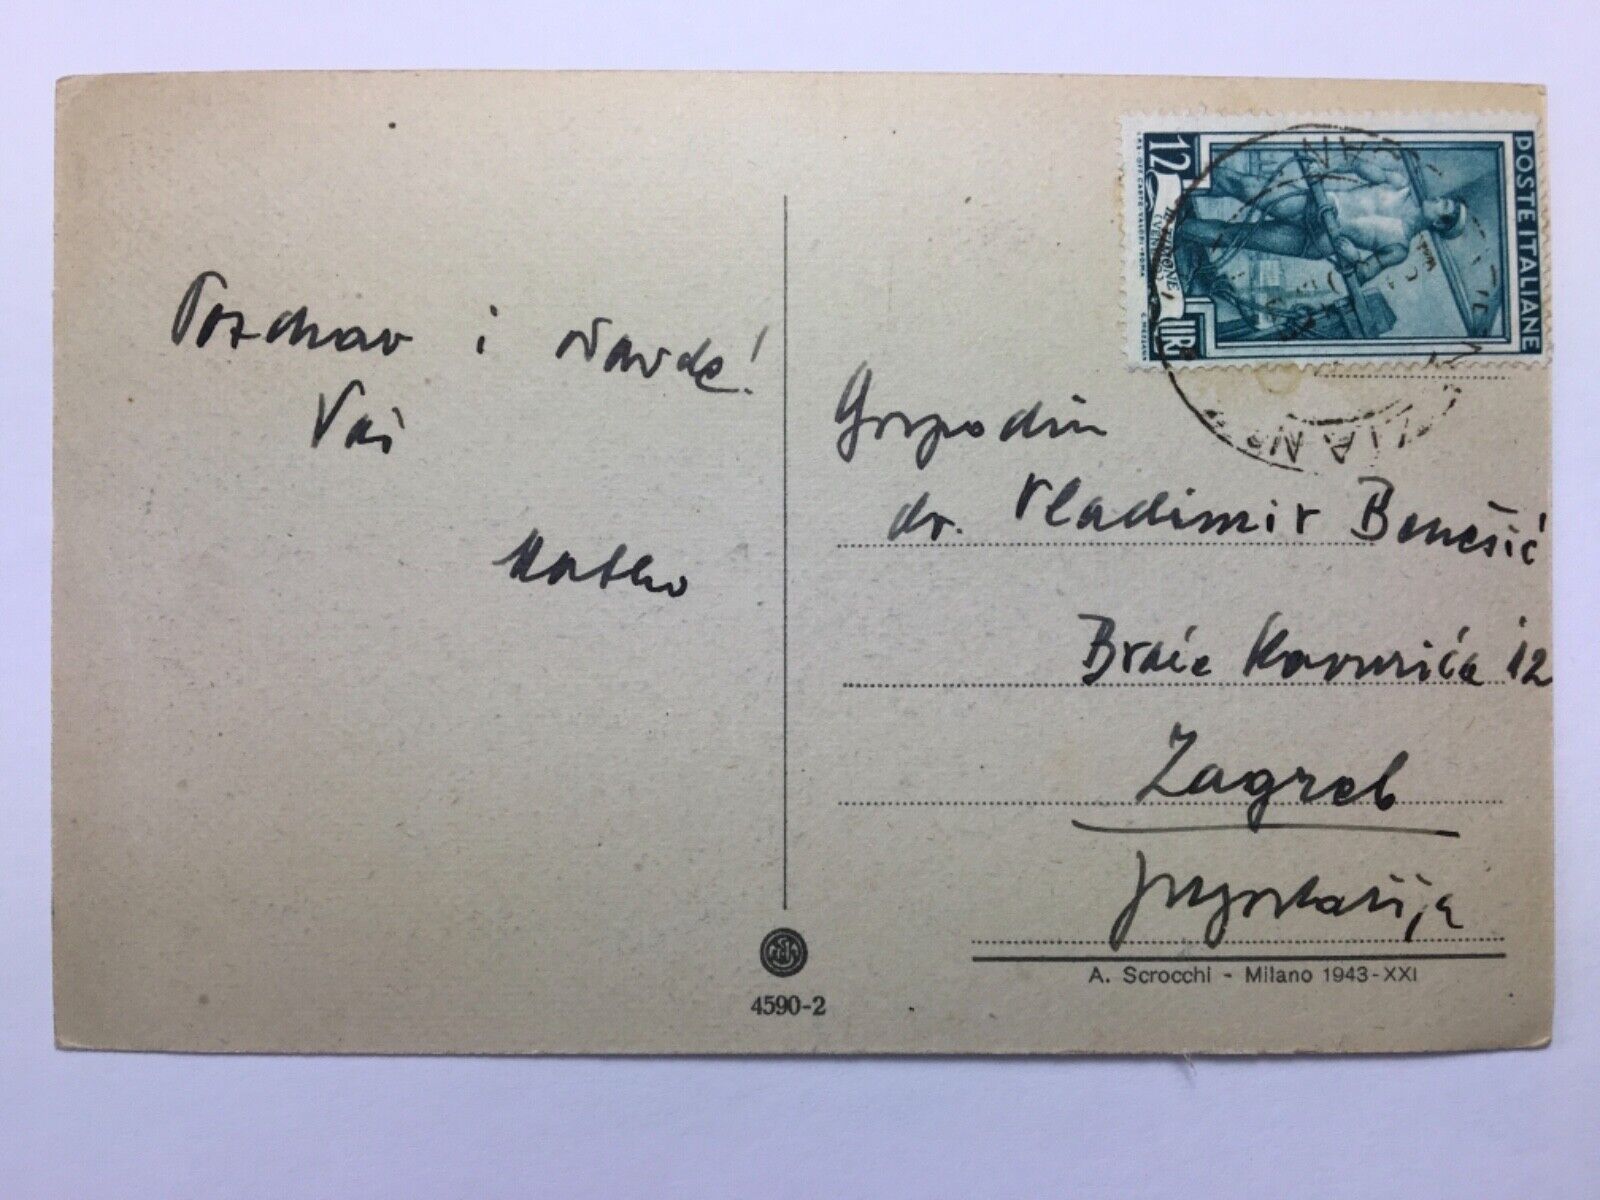 Pozdrav i odavde!
Vaš
Matko
Gospodin
dr. Vladimir Benešić
Braće Kavurića 12
Zagreb
Jugoslavija
12
LIRE
POSTE ITALIANE
IL TIMONE
A. Scrocchi - Milano 1943-XXI
4590-2